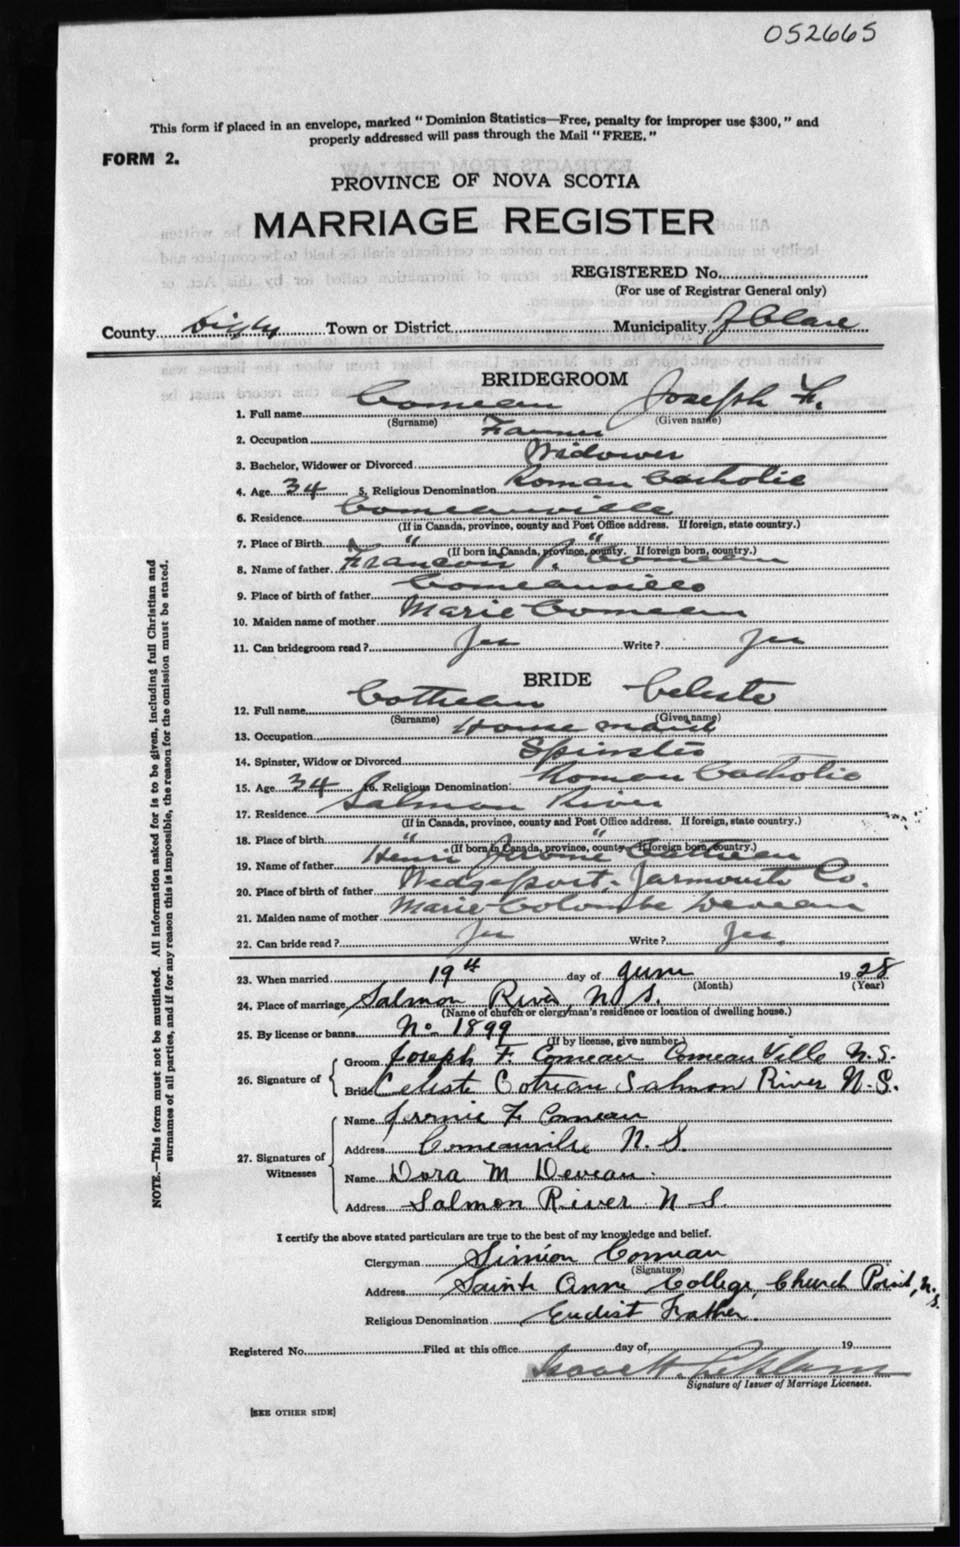 052665
This form if placed in an envelope, marked "Dominion Statistics—Free, penalty for improper use $300," and
properly addressed will pass through the Mail "FREE."
FORM 2.
PROVINCE OF NOVA SCOTIA
MARRIAGE REGISTER
REGISTERED No.
(For use of Registrar General only)
County Digby Town or District Municipality of Clare
BRIDEGROOM
1. Full name Comeau Joseph F.
(Surname) (Given name)
2. Occupation Farmer
3. Bachelor, Widower or Divorced Widower
4. Age 34 5. Religious Denomination Roman Catholic
6. Residence Comeauville
(If in Canada, province, county and Post Office address. If foreign, state country.)
7. Place of Birth " "
(If born in Canada, province, county. If foreign born, country.)
8. Name of father Francois P. Comeau
9. Place of birth of father Comeauville
10. Maiden name of mother Marie Comeau
11. Can bridegroom read? Yes Write? Yes
BRIDE
12. Full name Cottreau Celeste
(Surname) (Given name)
13. Occupation House maid
14. Spinster, Widow or Divorced Spinster
15. Age 34 16. Religious Denomination Roman Catholic
17. Residence Salmon River
(If in Canada, province, county and Post Office address. If foreign, state country.)
18. Place of birth " "
(If born in Canada, province, county. If foreign born, country.)
19. Name of father Henri Jerome Cottreau
20. Place of birth of father Wedgeport, Yarmouth Co.
21. Maiden name of mother Marie Colombe Deveau
22. Can bride read? Yes Write? Yes.
23. When married 19th day of June 1928
(Month) (Year)
24. Place of marriage Salmon River, N.S.
(Name of church or clergyman's residence or location of dwelling house.)
25. By license or banns No 1899
(If by license, give number)
26. Signature of
Groom Joseph F. Comeau Comeau Ville N.S.
Bride Celeste Cotreau Salmon River N.S.
27. Signatures of Witnesses
Name F. Comeau
Address Comeauville N.S.
Name Dora M Deveau.
Address Salmon River N S.
I certify the above stated particulars are true to the best of my knowledge and belief.
Clergyman Simion Comeau
(Signature)
Address Sainte Anne College, Church Point, N.S.
Religious Denomination Eudist Father.
Registered No. Filed at this office day of, 19
Signature of Issuer of Marriage Licenses.
[SEE OTHER SIDE]
NOTE.—This form must not be mutilated. All information asked for is to be given, including full Christian and
surnames of all parties, and if for any reason this is impossible, the reason for the omission must be stated.